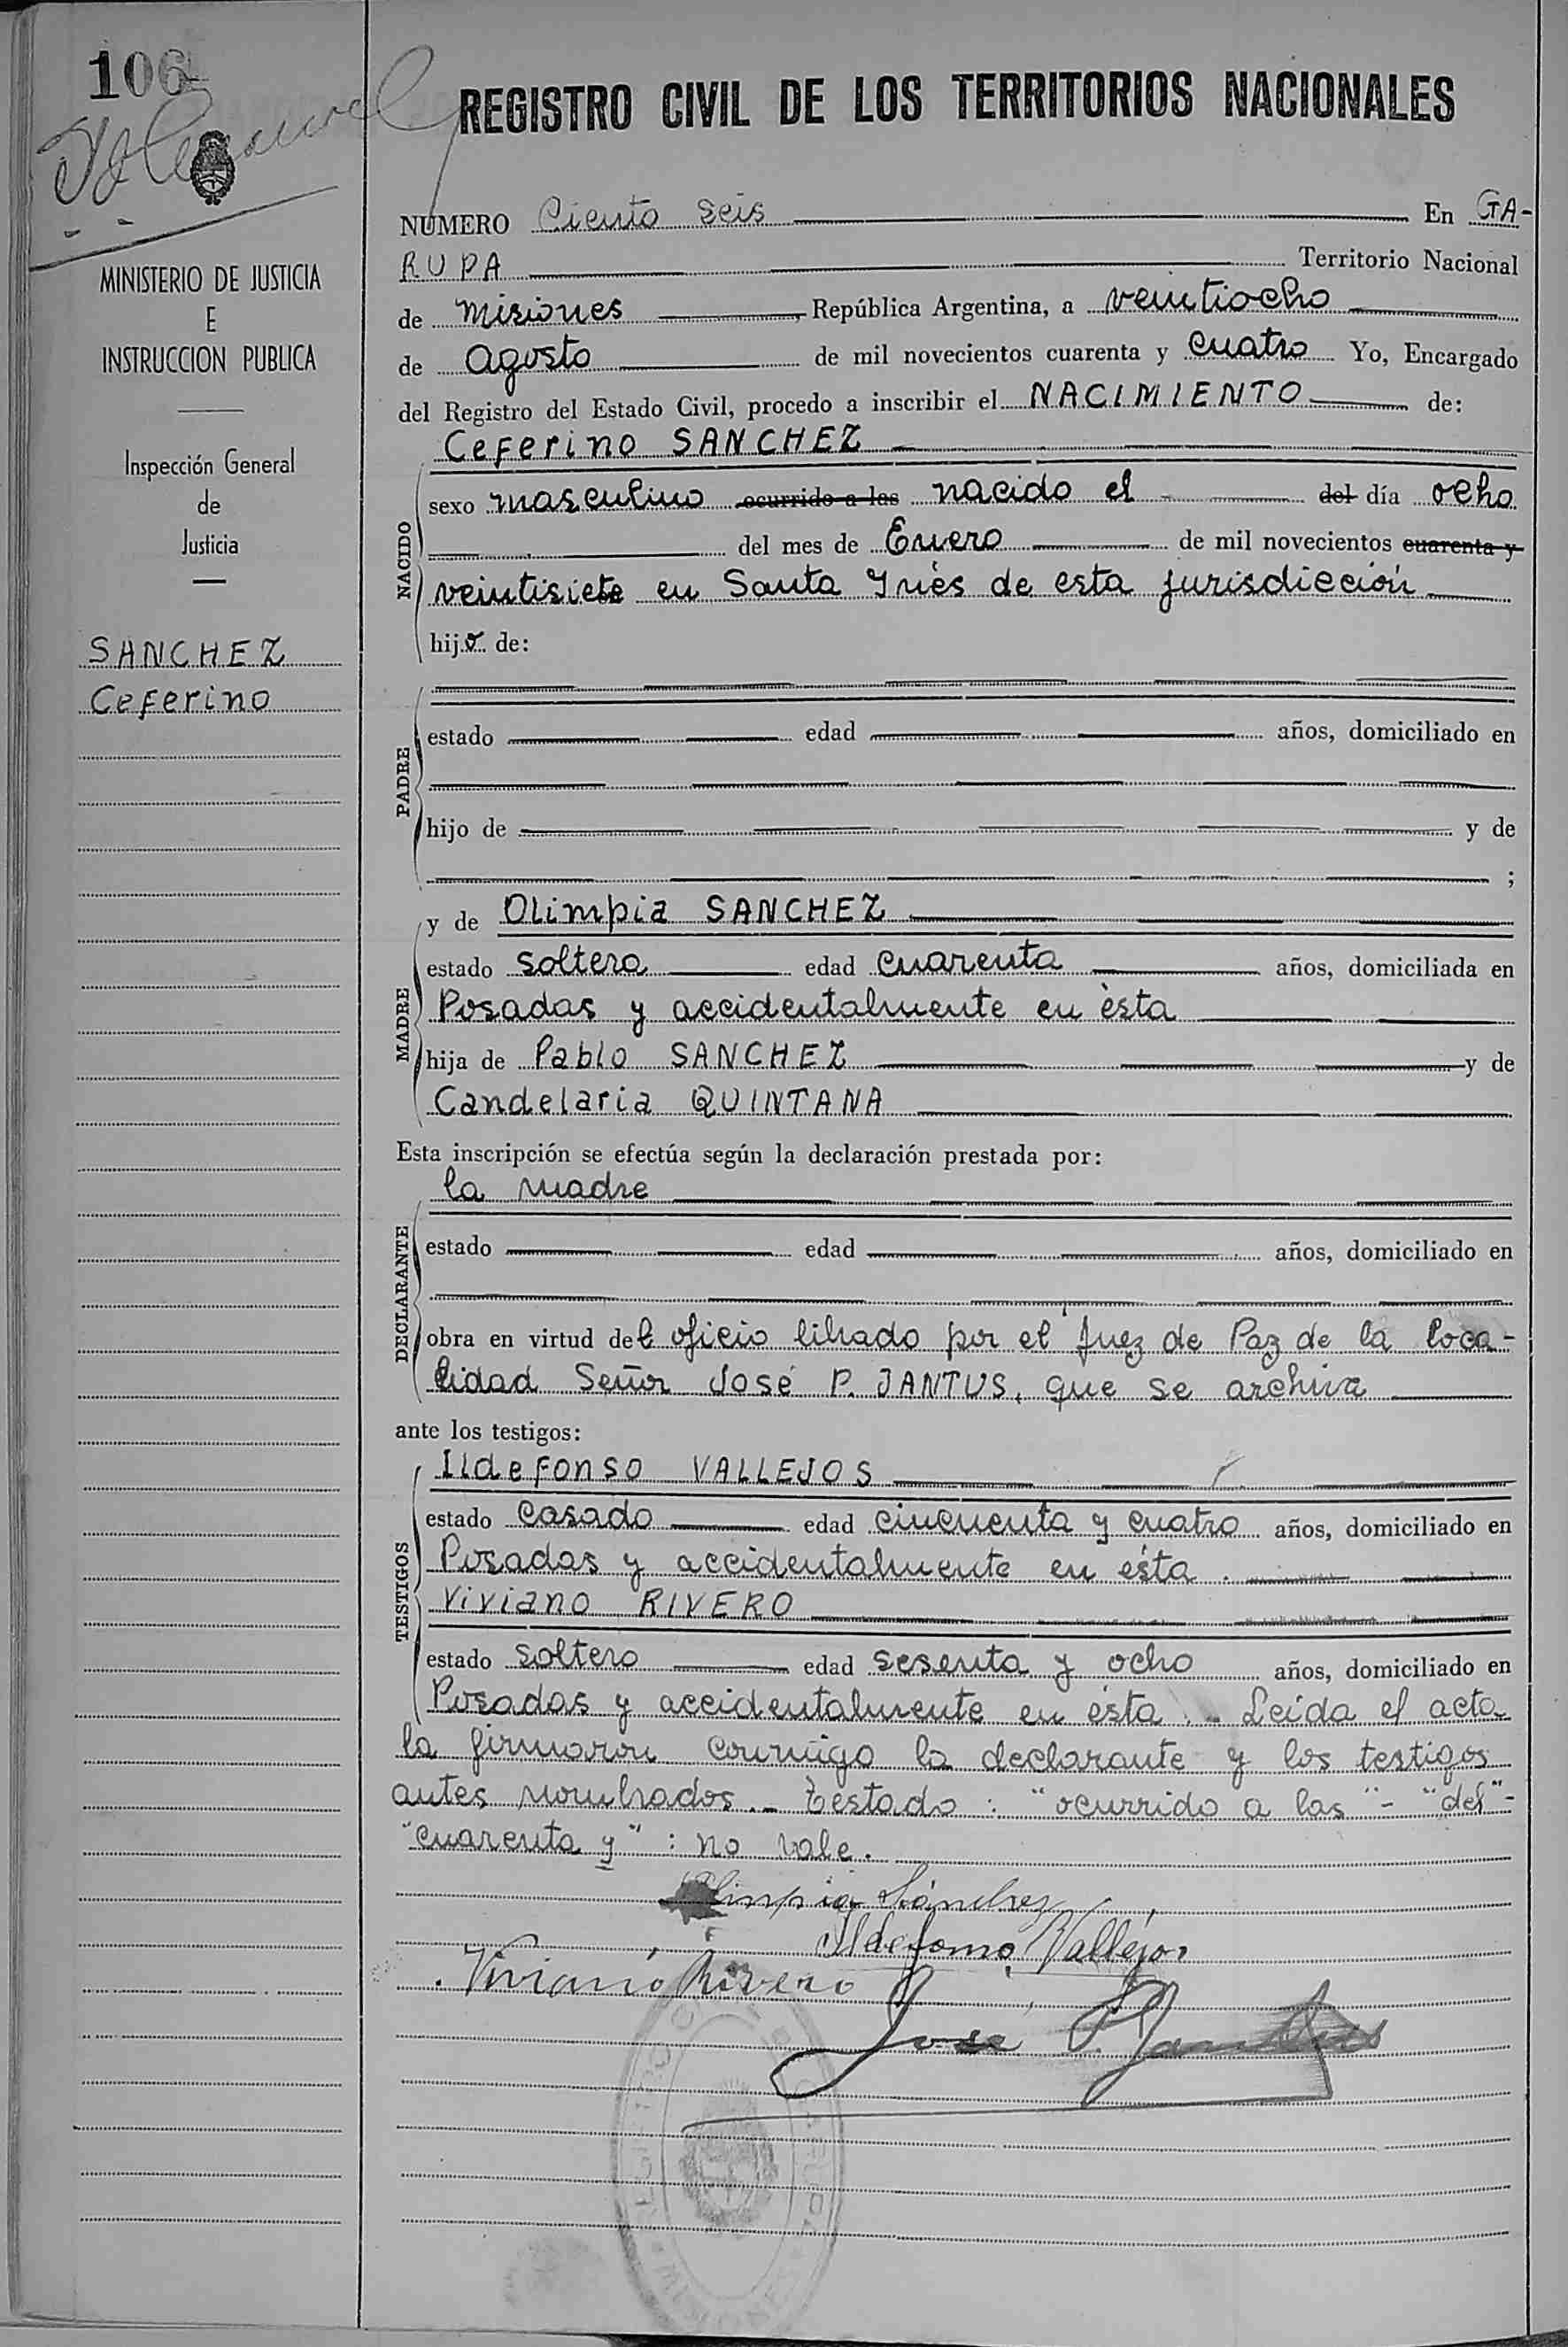 106
REGISTRO CIVIL DE LOS TERRITORIOS NACIONALES
MINISTERIO DE JUSTICIA
E
INSTRUCCION PUBLICA
Inspección General
de
Justicia
SANCHEZ
Ceferino
NUMERO Ciento seis En GA-
RUPA Territorio Nacional
de Misiones, República Argentina, a veintiocho
de Agosto de mil novecientos cuarenta y cuatro Yo, Encargado
del Registro del Estado Civil, procedo a inscribir el NACIMIENTO de:
Ceferino SANCHEZ
NACIDO
sexo masculino ocurrido a las nacido el del día ocho
del mes de Enero de mil novecientos cuarenta y
veintisiete en Santa Ynés de esta jurisdicción
hijo de:
PADRE
estado edad años, domiciliado en
hijo de y de
;
MADRE
y de Olimpia SANCHEZ
estado soltera edad cuarenta años, domiciliada en
Posadas y accidentalmente en ésta
hija de Pablo SANCHEZ y de
Candelaria QUINTANA
Esta inscripción se efectúa según la declaración prestada por:
DECLARANTE
la madre
estado edad años, domiciliado en
obra en virtud del oficio librado por el Juez de Paz de la loca-
lidad Señor José P. JANTUS, que se archiva
ante los testigos:
TESTIGOS
Ildefonso VALLEJOS
estado casado edad cincuenta y cuatro años, domiciliado en
Posadas y accidentalmente en ésta.
Viviano RIVERO
estado soltero edad sesenta y ocho años, domiciliado en
Posadas y accidentalmente en ésta.- Leída el acta
la firmaron conmigo la declarante y los testigos
antes nombrados.- Testado: "ocurrido a las"- "del"-
"cuarenta y": no vale.
Olimpia Sánchez
Ildefonso Vallejos
Viviano Rivero
José P. Jantus